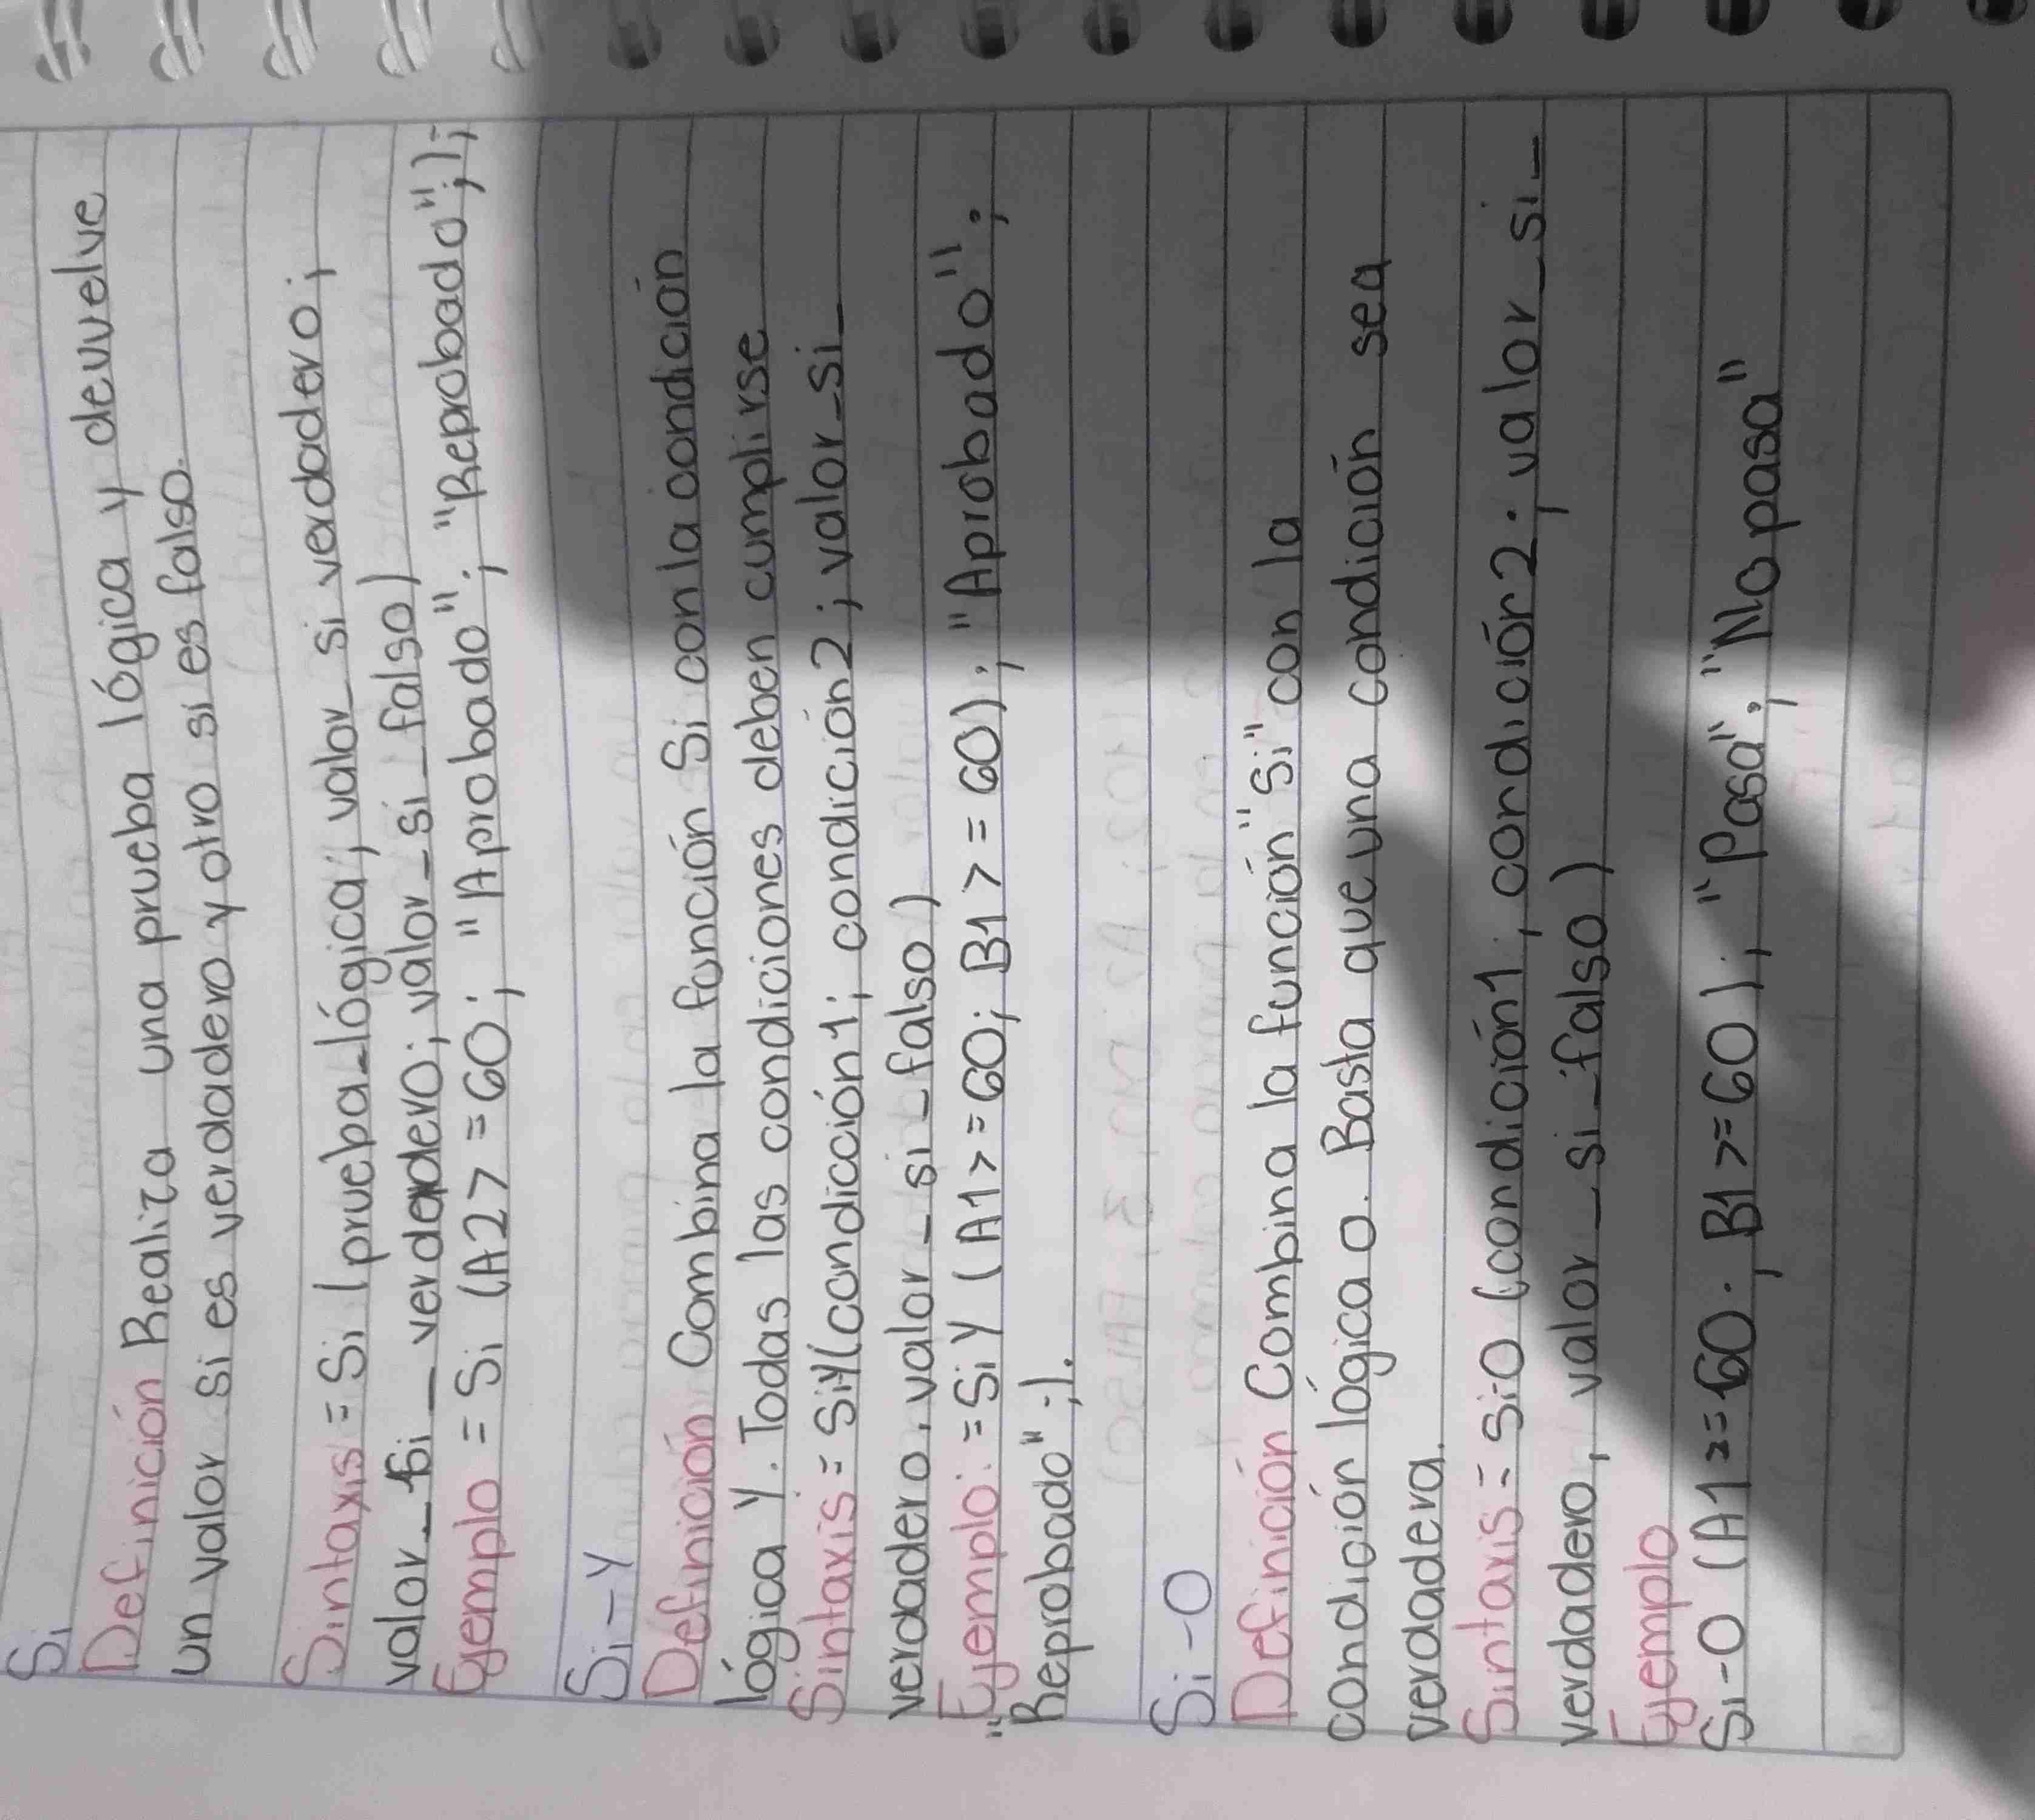 Si
Definición Realiza una prueba lógica y devuelve
un valor si es verdadero y otro si es falso.
Sintaxis = Si (prueba_lógica; valor_si verdadero;
valor_si_verdadero; valor_si_falso)
Ejemplo = Si (A2>=60; "Aprobado"; "Reprobado";);
Si-Y
Definición Combina la función Si con la condición
lógica Y. Todas las condiciones deben cumplirse
Sintaxis = SiY(condicción1; condición2; valor_si_
verdadero, valor_si_falso)
Ejemplo: =SiY (A1>=60; B1>=60); "Aprobado";
"Reprobado";).
Si-O
Definición Combina la función "Si" con la
condición lógica O. Basta que una condición sea
verdadera.
Sintaxis = SiO (condición1; condición2; valor_si_
verdadero, valor_si_falso)
Ejemplo
Si-O (A1>=60; B1>=60); "Pasa"; "No pasa"